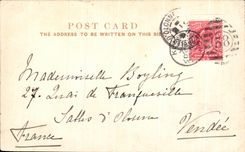 POST CARD
THE ADDRESS TO BE WRITTEN ON THIS SIDE
Mademoiselle Boyling
27. Quai de Franqueville
Sables d'Olonne
Vendée
France